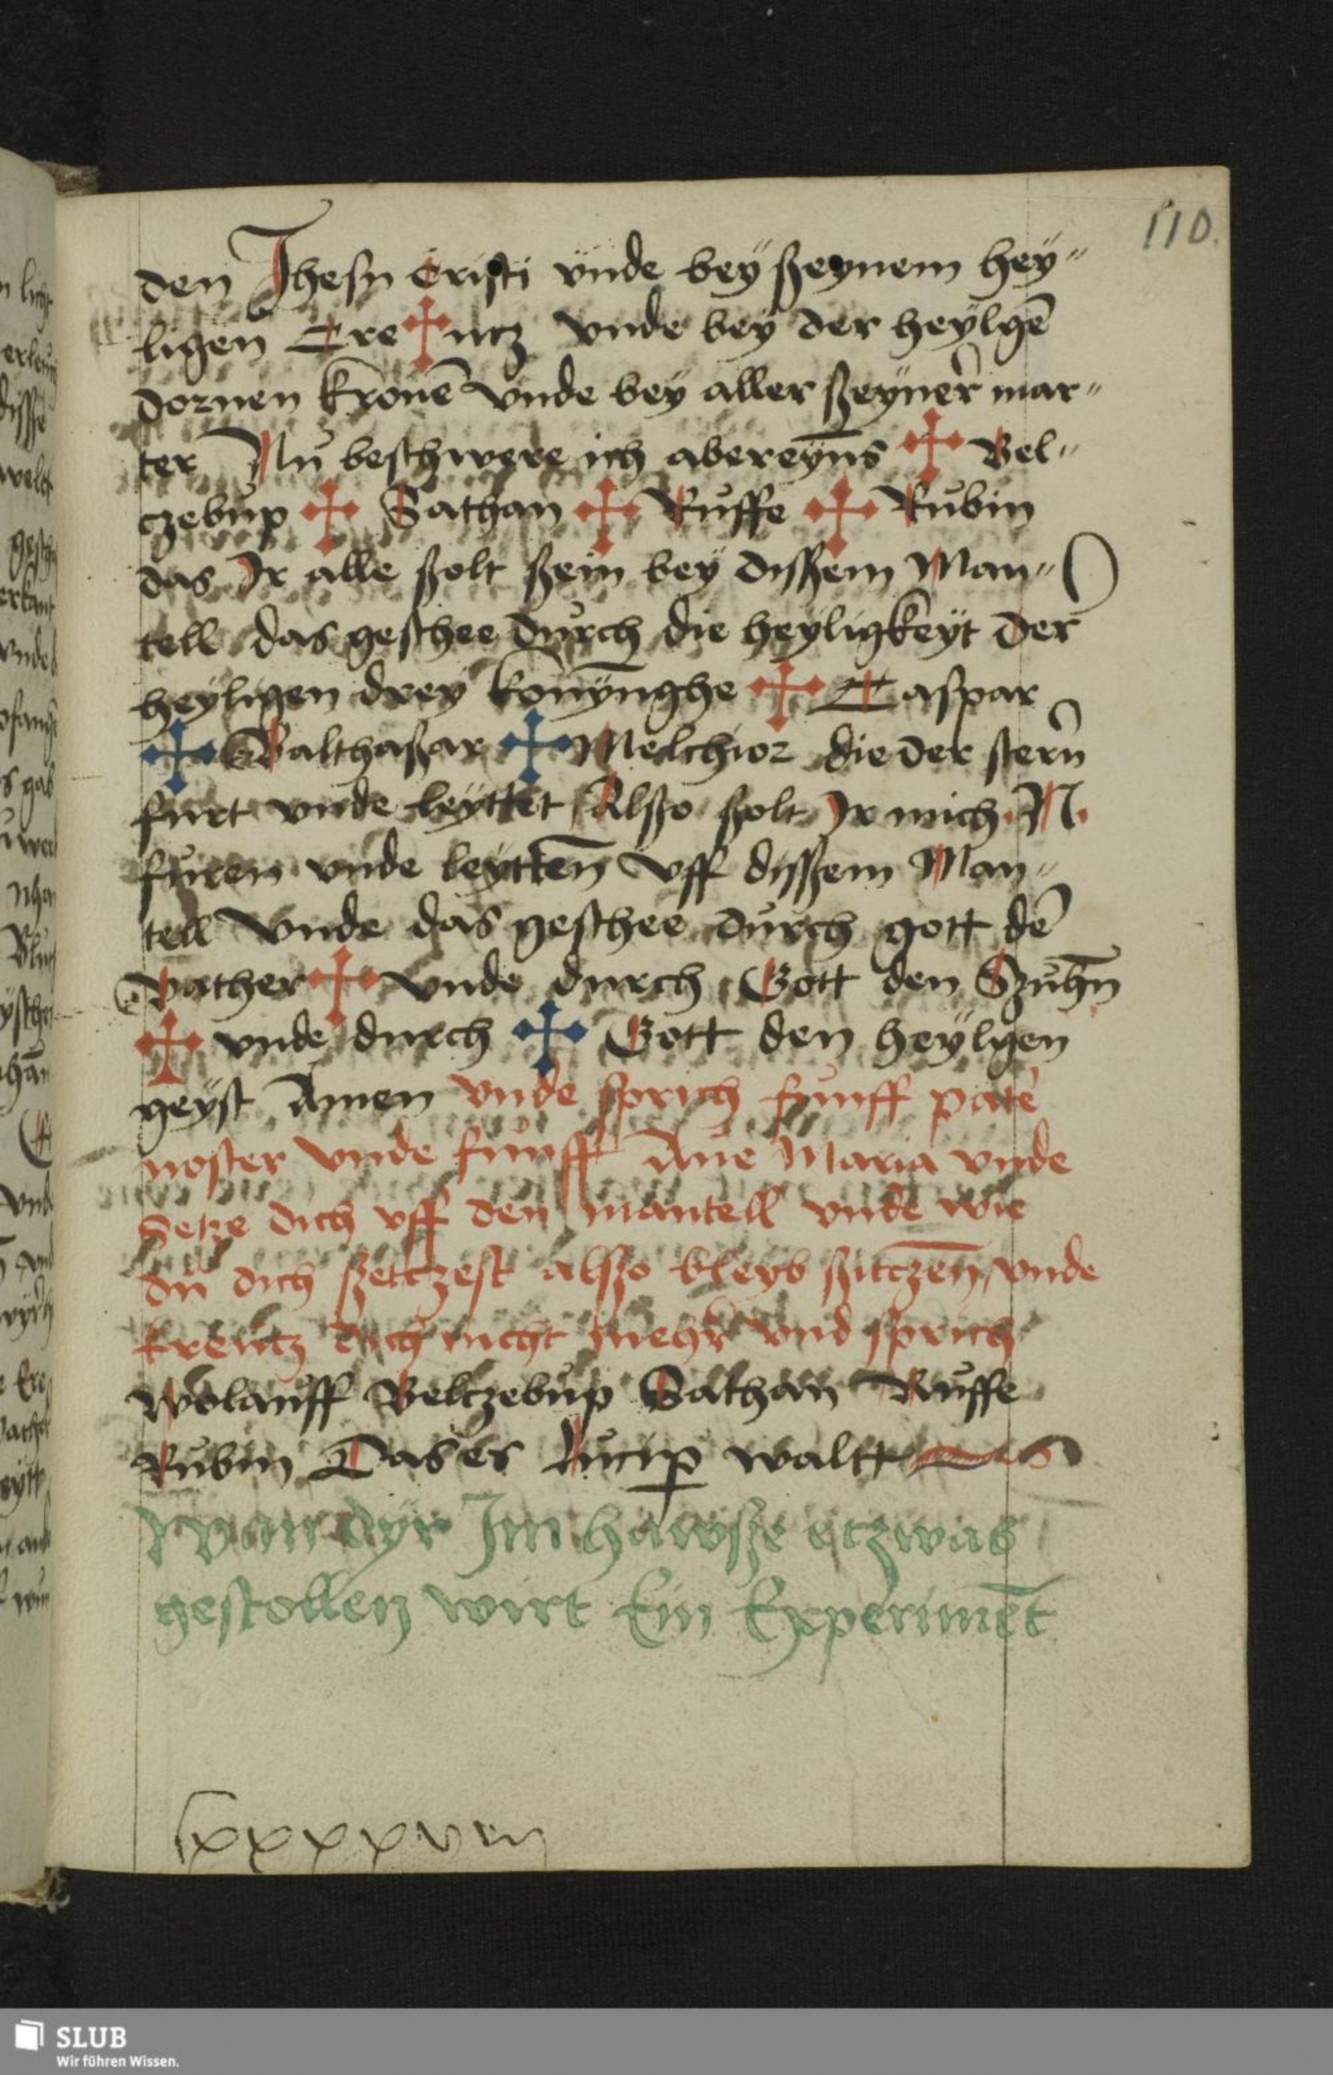 110.
den Jhesu Cristi vnde bey ßeynem hey״
ligen Cre✠utz vnde bey der heylgē
dornen kronē vnde bey aller ßeyner mar״
ter Nu beschwere ich abereyns ✠ Bel״
czebup ✠ Sathan ✠ Ruffe ✠ Rubin
das Jr alle ßolt ßein bey dißem Man״
tell das geschee durch die heyligkeyt der
heyligen drey konynghe ✠ Caspar
✠ Balthaßar ✠ Melchior die der stern
furt vnde leyttet Alßo ßolt Jr mich .N.
furen vnde leyttēn vff dissem Man״
tell vnde das geschee durch gott dē
Vather ✠ vnde durch Gott den Szuhn̄
✠ vnde durch ✠ Gott den heylgen
geyst Amen vnde sprich funff pater
noster vnde funff Aue Maria vnde
Setze dich vff den mantell vnde wie
du dich ßetczest alßo bleyb ßitczēn, vnde
kreutz dich nicht mehr vnd sprich
Wolauff Belczebup Sathan Ruffe
Rubin Das es Lucip̱ waltt
Wan dyr Jm hawsße etzwas
gestollen wirt Ein Experimēt
lxxxxvii
SLUB
Wir führen Wissen.